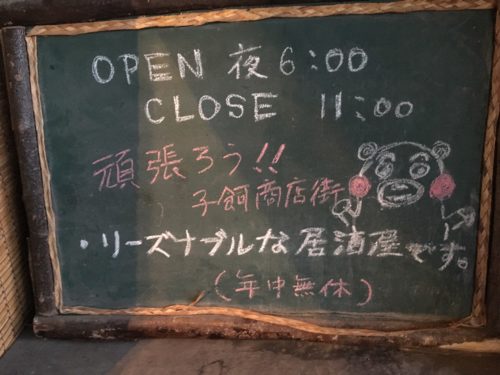 OPEN 夜 6:00
CLOSE 11:00
頑張ろう!!
子飼商店街
・リーズナブルな居酒屋です。
(年中無休)